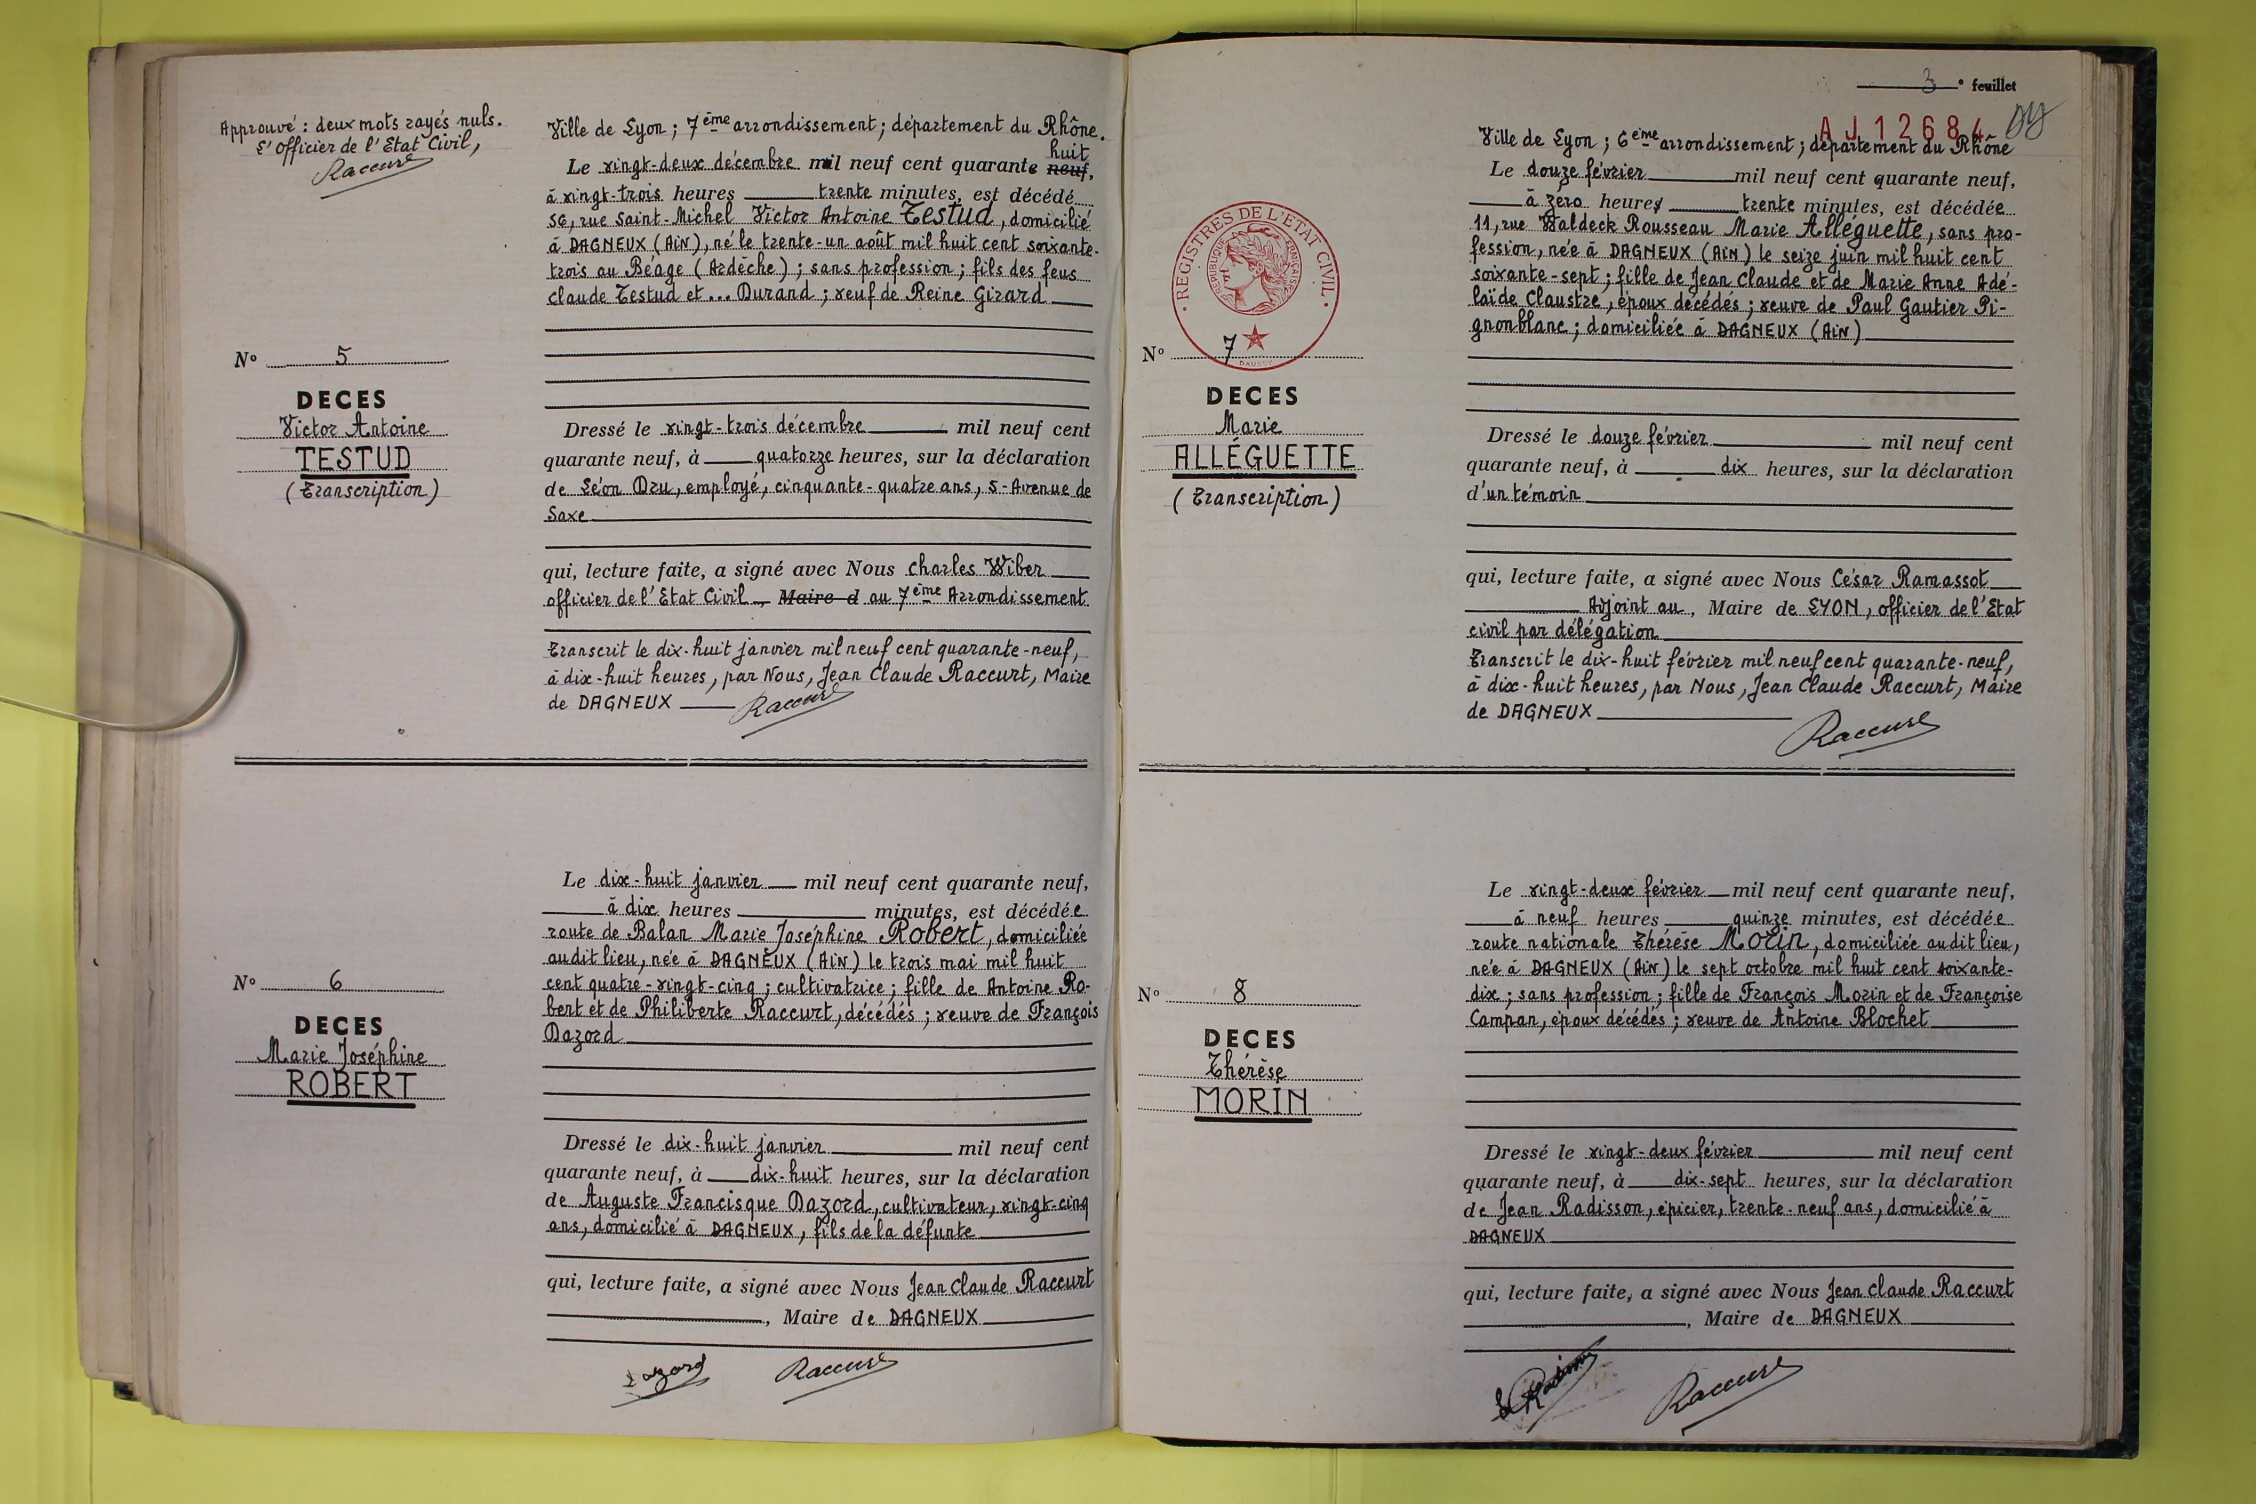 Approuvé : deux mots rayés nuls.
L'Officier de l'Etat Civil,
Raccurt
Ville de Lyon ; 7ème arrondissement ; département du Rhône.
huit
Le vingt-deux décembre mil neuf cent quarante neuf,
à vingt-trois heures trente minutes, est décédé
56, rue Saint-Michel Victor Antoine Testud, domicilié
à DAGNEUX (AIN), né le trente-un août mil huit cent soixante-
trois au Béage (Ardèche) ; sans profession ; fils des feus
Claude Testud et ... Durand ; veuf de Reine Girard
N° 5
DECES
Victor Antoine
TESTUD
(Transcription)
Dressé le vingt-trois décembre mil neuf cent
quarante neuf, à quatorze heures, sur la déclaration
de Léon Dru, employé, cinquante-quatre ans, 5-Avenue de
Saxe
qui, lecture faite, a signé avec Nous Charles Wiber
officier de l'Etat Civil Maire d au 7ème Arrondissement
Transcrit le dix-huit janvier mil neuf cent quarante-neuf,
à dix-huit heures, par Nous, Jean Claude Raccurt, Maire
de DAGNEUX Raccurt
Le dix-huit janvier mil neuf cent quarante neuf,
à dix heures minutes, est décédée
route de Balan Marie Joséphine Robert, domiciliée
audit lieu, née à DAGNEUX (AIN) le trois mai mil huit
cent quatre-vingt-cinq ; cultivatrice ; fille de Antoine Ro-
bert et de Philiberte Raccurt, décédés ; veuve de François
Dazord
N° 6
DECES
Marie Joséphine
ROBERT
Dressé le dix-huit janvier mil neuf cent
quarante neuf, à dix-huit heures, sur la déclaration
de Auguste Francisque Dazord, cultivateur, vingt-cinq
ans, domicilié à DAGNEUX, fils de la défunte
qui, lecture faite, a signé avec Nous Jean Claude Raccurt
, Maire de DAGNEUX
Dazord Raccurt
3 e feuillet
AJ12684
Ville de Lyon ; 6ème arrondissement ; département du Rhône
Le douze février mil neuf cent quarante neuf,
à zéro heures trente minutes, est décédée
11, rue Waldeck Rousseau Marie Alléguette, sans pro-
fession, née à DAGNEUX (AIN) le seize juin mil huit cent
soixante-sept ; fille de Jean Claude et de Marie Anne Adé-
laïde Claustre, époux décédés ; veuve de Paul Gautier Pi-
gnonblanc ; domiciliée à DAGNEUX (AIN)
REGISTRES DE L'ETAT CIVIL
REPUBLIQUE FRANÇAISE
N° 7
DECES
Marie
ALLÉGUETTE
(Transcription)
Dressé le douze février mil neuf cent
quarante neuf, à dix heures, sur la déclaration
d'un témoin
qui, lecture faite, a signé avec Nous César Ramassot
Adjoint au, Maire de LYON, officier de l'Etat
civil par délégation
Transcrit le dix-huit février mil neuf cent quarante-neuf,
à dix-huit heures, par Nous, Jean Claude Raccurt, Maire
de DAGNEUX
Raccurt
Le vingt-deux février mil neuf cent quarante neuf,
à neuf heures quinze minutes, est décédée
route nationale Thérèse Morin, domiciliée audit lieu,
née à DAGNEUX (AIN) le sept octobre mil huit cent soixante-
dix ; sans profession ; fille de François Morin et de Françoise
Campan, époux décédés ; veuve de Antoine Blochet
N° 8
DECES
Thérèse
MORIN
Dressé le vingt-deux février mil neuf cent
quarante neuf, à dix-sept heures, sur la déclaration
de Jean Radisson, épicier, trente-neuf ans, domicilié à
DAGNEUX
qui, lecture faite, a signé avec Nous Jean Claude Raccurt
, Maire de DAGNEUX
Raccurt